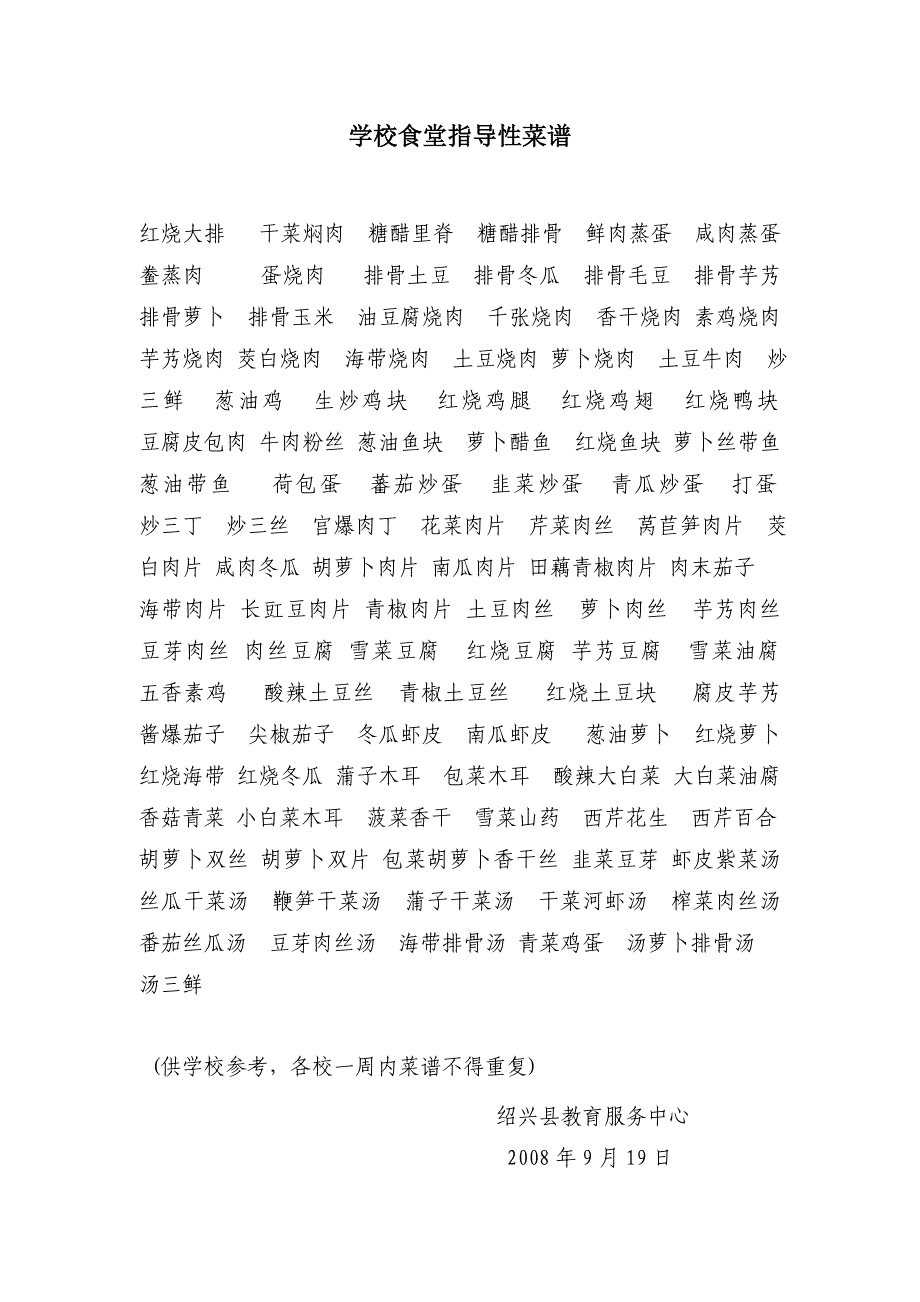 学校食堂指导性菜谱
红烧大排 干菜焖肉 糖醋里脊 糖醋排骨 鲜肉蒸蛋 咸肉蒸蛋
鲞蒸肉 蛋烧肉 排骨土豆 排骨冬瓜 排骨毛豆 排骨芋艿
排骨萝卜 排骨玉米 油豆腐烧肉 千张烧肉 香干烧肉 素鸡烧肉
芋艿烧肉 茭白烧肉 海带烧肉 土豆烧肉 萝卜烧肉 土豆牛肉 炒
三鲜 葱油鸡 生炒鸡块 红烧鸡腿 红烧鸡翅 红烧鸭块
豆腐皮包肉 牛肉粉丝 葱油鱼块 萝卜醋鱼 红烧鱼块 萝卜丝带鱼
葱油带鱼 荷包蛋 蕃茄炒蛋 韭菜炒蛋 青瓜炒蛋 打蛋
炒三丁 炒三丝 宫爆肉丁 花菜肉片 芹菜肉丝 莴苣笋肉片 茭
白肉片 咸肉冬瓜 胡萝卜肉片 南瓜肉片 田藕青椒肉片 肉末茄子
海带肉片 长豇豆肉片 青椒肉片 土豆肉丝 萝卜肉丝 芋艿肉丝
豆芽肉丝 肉丝豆腐 雪菜豆腐 红烧豆腐 芋艿豆腐 雪菜油腐
五香素鸡 酸辣土豆丝 青椒土豆丝 红烧土豆块 腐皮芋艿
酱爆茄子 尖椒茄子 冬瓜虾皮 南瓜虾皮 葱油萝卜 红烧萝卜
红烧海带 红烧冬瓜 蒲子木耳 包菜木耳 酸辣大白菜 大白菜油腐
香菇青菜 小白菜木耳 菠菜香干 雪菜山药 西芹花生 西芹百合
胡萝卜双丝 胡萝卜双片 包菜胡萝卜香干丝 韭菜豆芽 虾皮紫菜汤
丝瓜干菜汤 鞭笋干菜汤 蒲子干菜汤 干菜河虾汤 榨菜肉丝汤
番茄丝瓜汤 豆芽肉丝汤 海带排骨汤 青菜鸡蛋 汤萝卜排骨汤
汤三鲜
(供学校参考，各校一周内菜谱不得重复)
绍兴县教育服务中心
2008 年 9 月 19 日